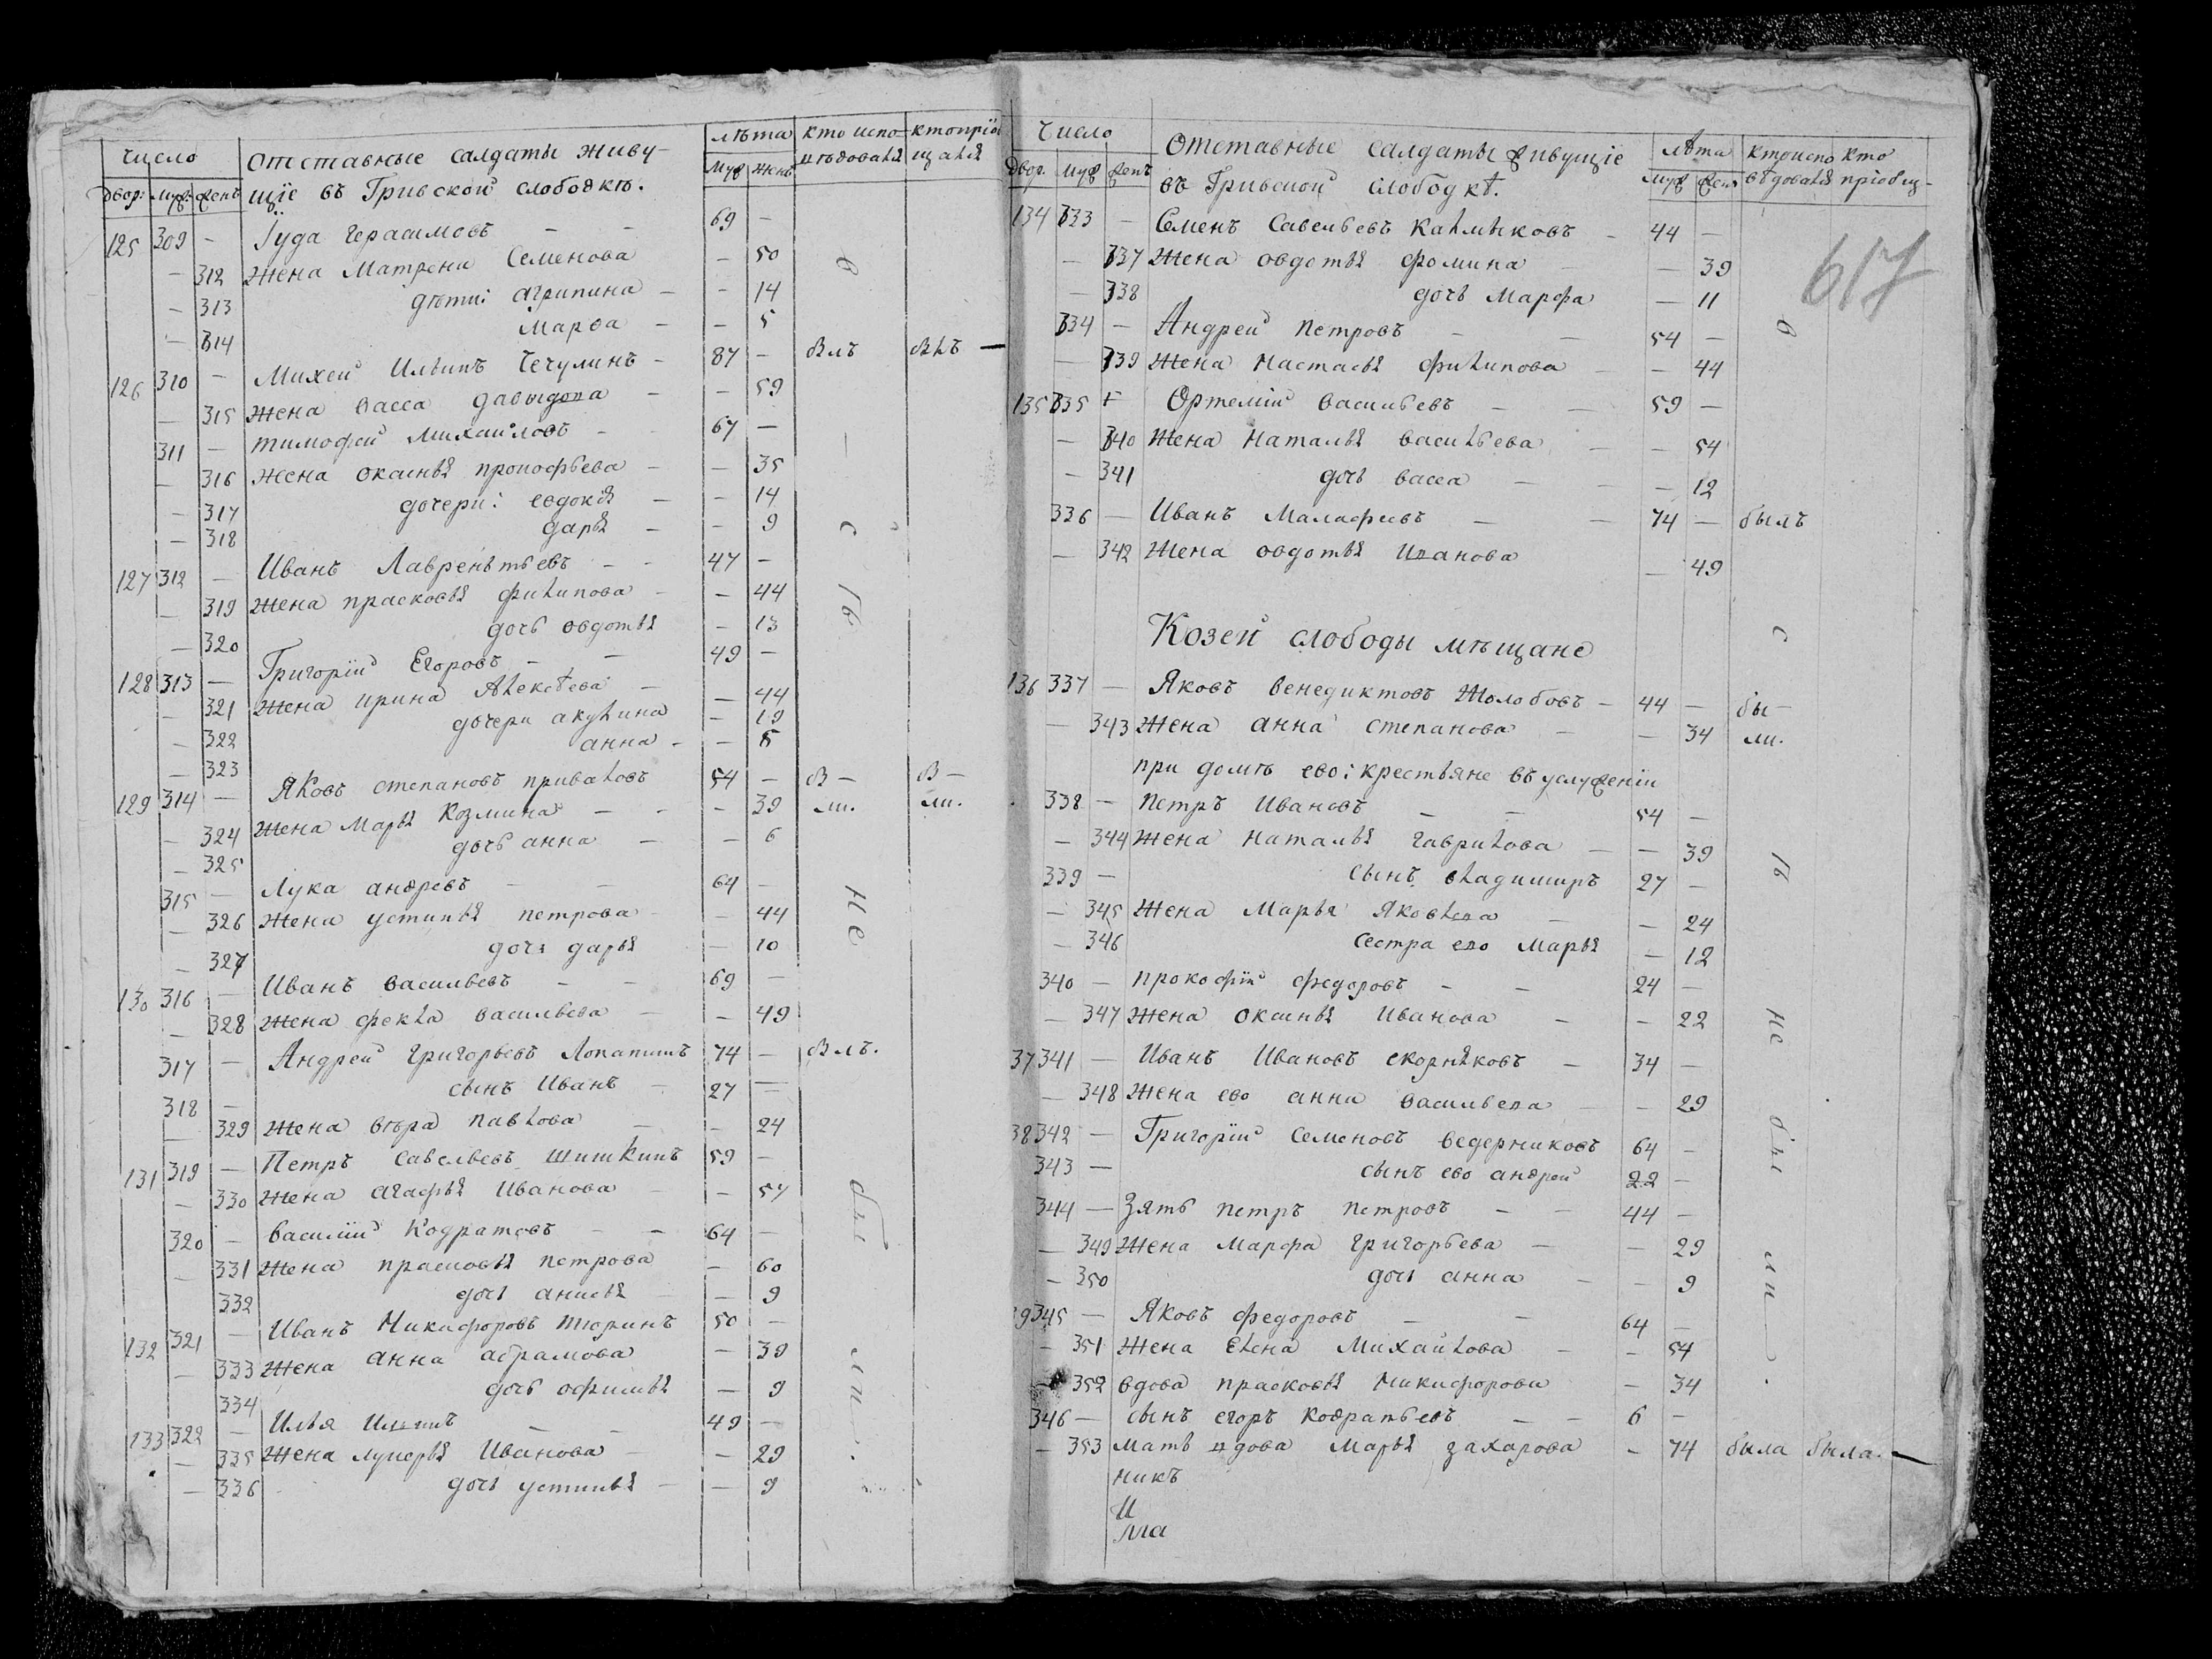 число отставные салдаты живу- лѣта кто испо- кто прїоб
двор: муж: женъ щїе въ Гривской слободкѣ. муж женъ вѣдовался щался
125 309 - Їуда Герасимовъ - - 69 -
- 312 жена Матрена Семенова - 50
- 313 дѣти: агрипина - - 14
- 314 Марѳа - - 5
126 310 - Михей Ильинъ Чечулинъ - 87 - былъ былъ —
- 315 жена васса давыдова - - 59
311 - тимофей михайловъ - 67 -
- 316 жена оксинья прокофьева - - 35
- 317 дочери: евдокія - - 14
- 318 дарья - - 9
127 312 - Иванъ Лаврентьевъ - - 47 -
- 319 жена прасковья филипова - - 44
- 320 дочь овдотья - 13
128 313 - Григорїй Егоровъ - - 49 -
- 321 жена ирина Алексѣева - - 44
- 322 дочери акулина - 19
- 323 анна - - 8
129 314 - Яковъ степановъ приваловъ 54 - бы- бы-
- 324 жена Марья Козмина - - - 39 ли. ли.
- 325 дочь анна - - 6
315 - Лука андреевъ - - 64 -
- 326 жена устинья петрова - - 44
- 327 дочь дарья - 10
130 316 - Иванъ васильевъ - - 69 -
- 328 жена фекла васильева - - 49
317 - Андрей григорьевъ Лопатинъ 74 - былъ.
318 - сынъ Иванъ - 27 -
- 329 жена вѣра павлова - - 24
131 319 - Петръ савельевъ шишкинъ 59 -
- 330 жена агафья Иванова - - 57
320 - василїй Кодратовъ - - 64 -
- 331 жена прасковья петрова - 60
332 дочь анисья - 9
132 321 - Иванъ Никифоровъ тюринъ 50 -
- 333 жена анна абрамова - 39
334 дочь офимья - 9
133 322 - Илья Ильинъ - - 49 -
- 335 жена лукерья Иванова - - 29
- 336 дочь устинья - - 9
в - с ѣ не бы ли.
число Отставные салдаты живущїе лѣта кто испо кто
двор. муж женъ въ Гривской слободкѣ. муж жен вѣдовался прїобщ-
617
134 333 - Семенъ Савельевъ Калмыковъ - 44 -
- 337 жена овдотья фомина - - 39
- 338 дочь Марфа - 11
334 - Андрей петровъ - - 54 -
- 339 жена настасья филипова - - 44
135 335 - Ортемїй васильевъ - - 59 -
- 340 жена наталья васильева - - 54
- 341 дочь васса - - - 12
336 - Иванъ Малафеевъ - - 74 - былъ
- 342 жена овдотья Иванова - 49
Козей слободы мѣщане
136 337 - Яковъ венедиктовъ жолобовъ - 44 - бы-
- 343 жена анна степанова - - 34 ли.
при домѣ ево: крестьяне въ услуженїи
338 - петръ Ивановъ - - 54 -
- 344 жена наталья гаврилова - - 39
339 - сынъ владимиръ 27 -
- 345 жена Марья Яковлева - - 24
- 346 сестра ево Марья - 12
340 - прокофїй федоровъ - - 24 -
- 347 жена оксинья Иванова - - 22
37 341 - Иванъ Ивановъ скорняковъ - 34 -
- 348 жена ево анна васильева - - 29
38 342 - Григорїй семеновъ ведерниковъ 64 -
343 - сынъ ево андрей 22 -
344 - зять петръ петровъ - - 44 -
- 349 жена марфа григорьева - - 29
- 350 дочь анна - - 9
39 345 - Яковъ федоровъ - - 64 -
- 351 жена Елена Михайлова - - 54
- 352 вдова прасковья никифорова - 34
346 - сынъ егоръ кодратьевъ - - 6 -
- 353 мать вдова Марья захарова - 74 была была. —
никъ
И
мла
в с ѣ не бы ли.